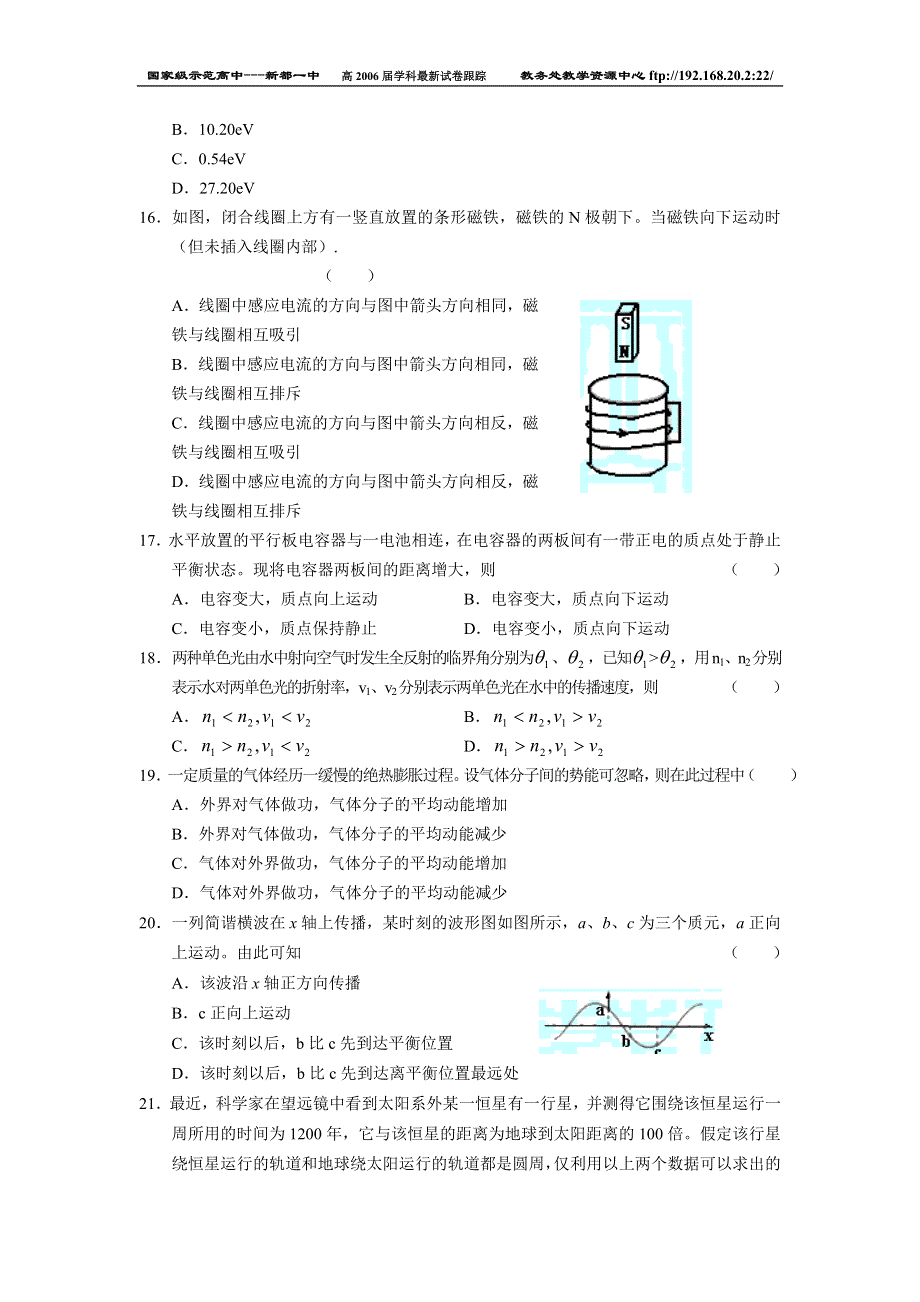 国家级示范高中---新都一中 高 2006 届学科最新试卷跟踪 教务处教学资源中心 ftp://192.168.20.2:22/
B．10.20eV
C．0.54eV
D．27.20eV
16．如图，闭合线圈上方有一竖直放置的条形磁铁，磁铁的 N 极朝下。当磁铁向下运动时
（但未插入线圈内部）.
（ ）
A．线圈中感应电流的方向与图中箭头方向相同，磁
铁与线圈相互吸引
B．线圈中感应电流的方向与图中箭头方向相同，磁
铁与线圈相互排斥
C．线圈中感应电流的方向与图中箭头方向相反，磁
铁与线圈相互吸引
D．线圈中感应电流的方向与图中箭头方向相反，磁
铁与线圈相互排斥
S
N
17．水平放置的平行板电容器与一电池相连，在电容器的两板间有一带正电的质点处于静止
平衡状态。现将电容器两板间的距离增大，则 （ ）
A．电容变大，质点向上运动 B．电容变大，质点向下运动
C．电容变小，质点保持静止 D．电容变小，质点向下运动
18．两种单色光由水中射向空气时发生全反射的临界角分别为θ₁、θ₂，已知θ₁>θ₂，用 n₁、n₂ 分别
表示水对两单色光的折射率，v₁、v₂ 分别表示两单色光在水中的传播速度，则 （ ）
A．n₁ < n₂, v₁ < v₂ B．n₁ < n₂, v₁ > v₂
C．n₁ > n₂, v₁ < v₂ D．n₁ > n₂, v₁ > v₂
19．一定质量的气体经历一缓慢的绝热膨胀过程。设气体分子间的势能可忽略，则在此过程中（ ）
A．外界对气体做功，气体分子的平均动能增加
B．外界对气体做功，气体分子的平均动能减少
C．气体对外界做功，气体分子的平均动能增加
D．气体对外界做功，气体分子的平均动能减少
20．一列简谐横波在 x 轴上传播，某时刻的波形图如图所示，a、b、c 为三个质元，a 正向
上运动。由此可知 （ ）
A．该波沿 x 轴正方向传播
B．c 正向上运动
C．该时刻以后，b 比 c 先到达平衡位置
D．该时刻以后，b 比 c 先到达离平衡位置最远处
a
b
c
x
21．最近，科学家在望远镜中看到太阳系外某一恒星有一行星，并测得它围绕该恒星运行一
周所用的时间为 1200 年，它与该恒星的距离为地球到太阳距离的 100 倍。假定该行星
绕恒星运行的轨道和地球绕太阳运行的轨道都是圆周，仅利用以上两个数据可以求出的